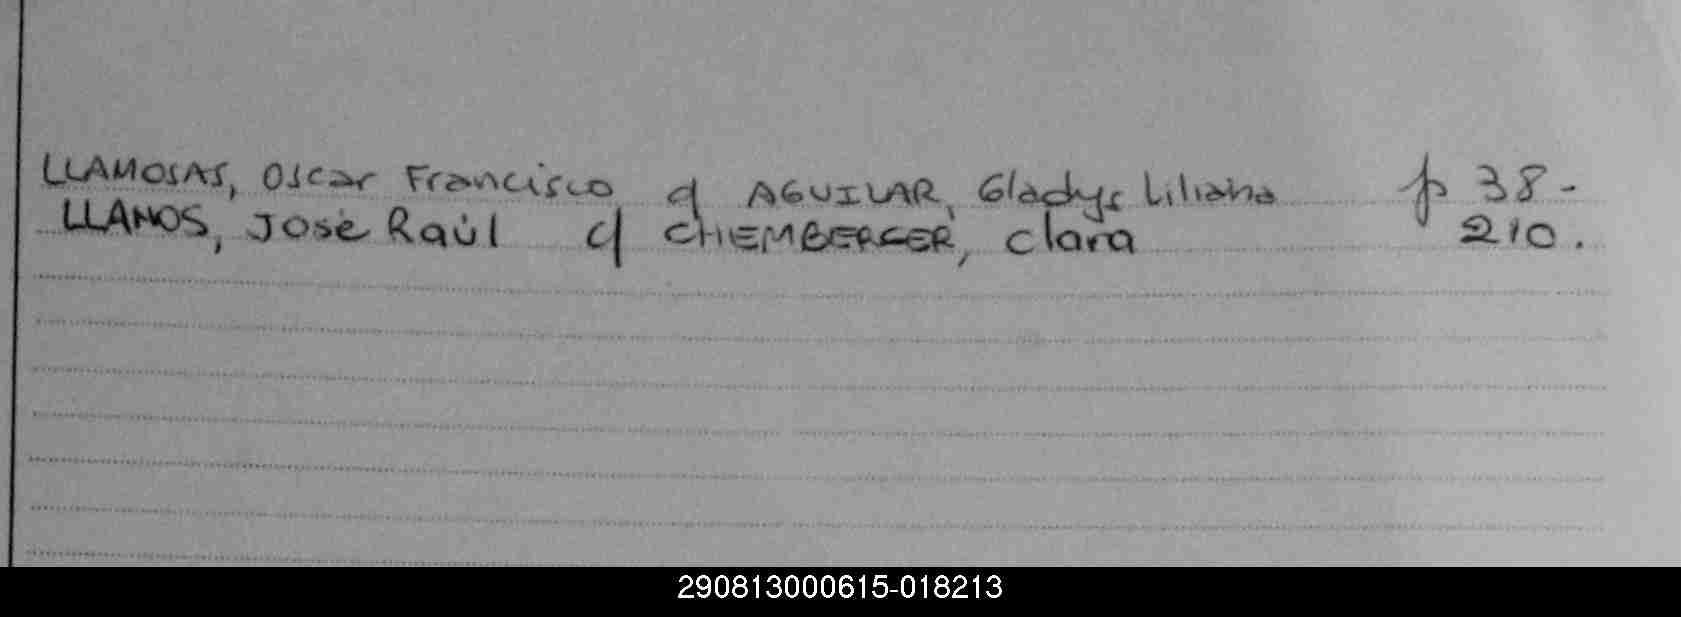 LLAMOSAS, Oscar Francisco c/ AGUILAR, Gladys Liliana p 38-
LLANOS, José Raúl c/ CHEMBERGER, Clara 210.
290813000615-018213